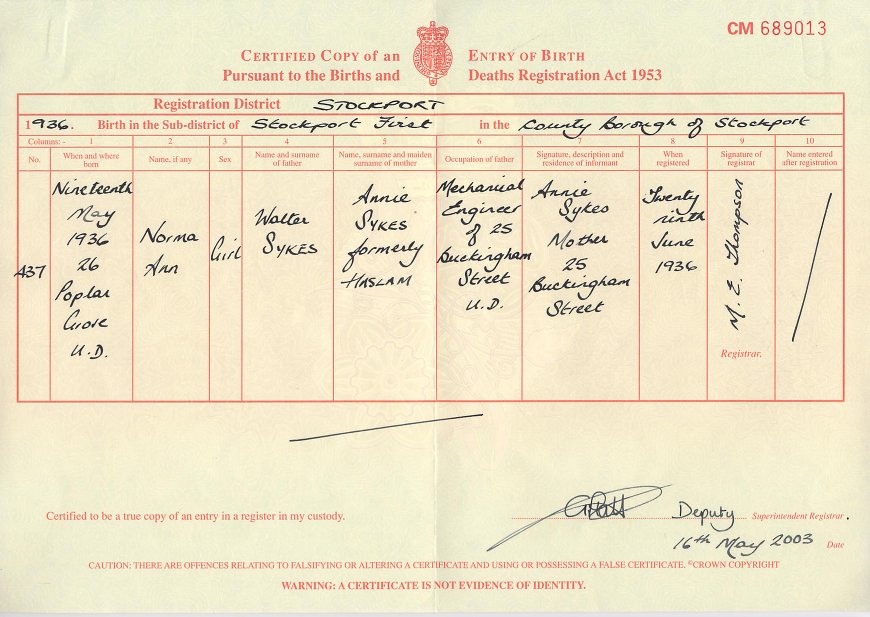 CM 689013
CERTIFIED COPY OF AN ENTRY OF BIRTH
Pursuant to the Births and Deaths Registration Act 1953
Registration District STOCKPORT
1936. Birth in the Sub-district of Stockport First in the County Borough of Stockport
Columns: - 1 2 3 4 5 6 7 8 9 10
No.
When and where
born
Name, if any
Sex
Name and surname
of father
Name, surname and maiden
surname of mother
Occupation of father
Signature, description and
residence of informant
When
registered
Signature of
registrar
Name entered
after registration
437
Nineteenth
May
1936
26
Poplar
Grove
U.D.
Norma
Ann
Girl
Walter
SYKES
Annie
SYKES
formerly
HASLAM
Mechanical
Engineer
of 25
Buckingham
Street
U.D.
Annie
Sykes
Mother
25
Buckingham
Street
Twenty
ninth
June
1936
M. E. Thompson
Registrar.
Certified to be a true copy of an entry in a register in my custody.
Deputy Superintendent Registrar.
16th May 2003 Date
CAUTION: THERE ARE OFFENCES RELATING TO FALSIFYING OR ALTERING A CERTIFICATE AND USING OR POSSESSING A FALSE CERTIFICATE. ©CROWN COPYRIGHT
WARNING: A CERTIFICATE IS NOT EVIDENCE OF IDENTITY.